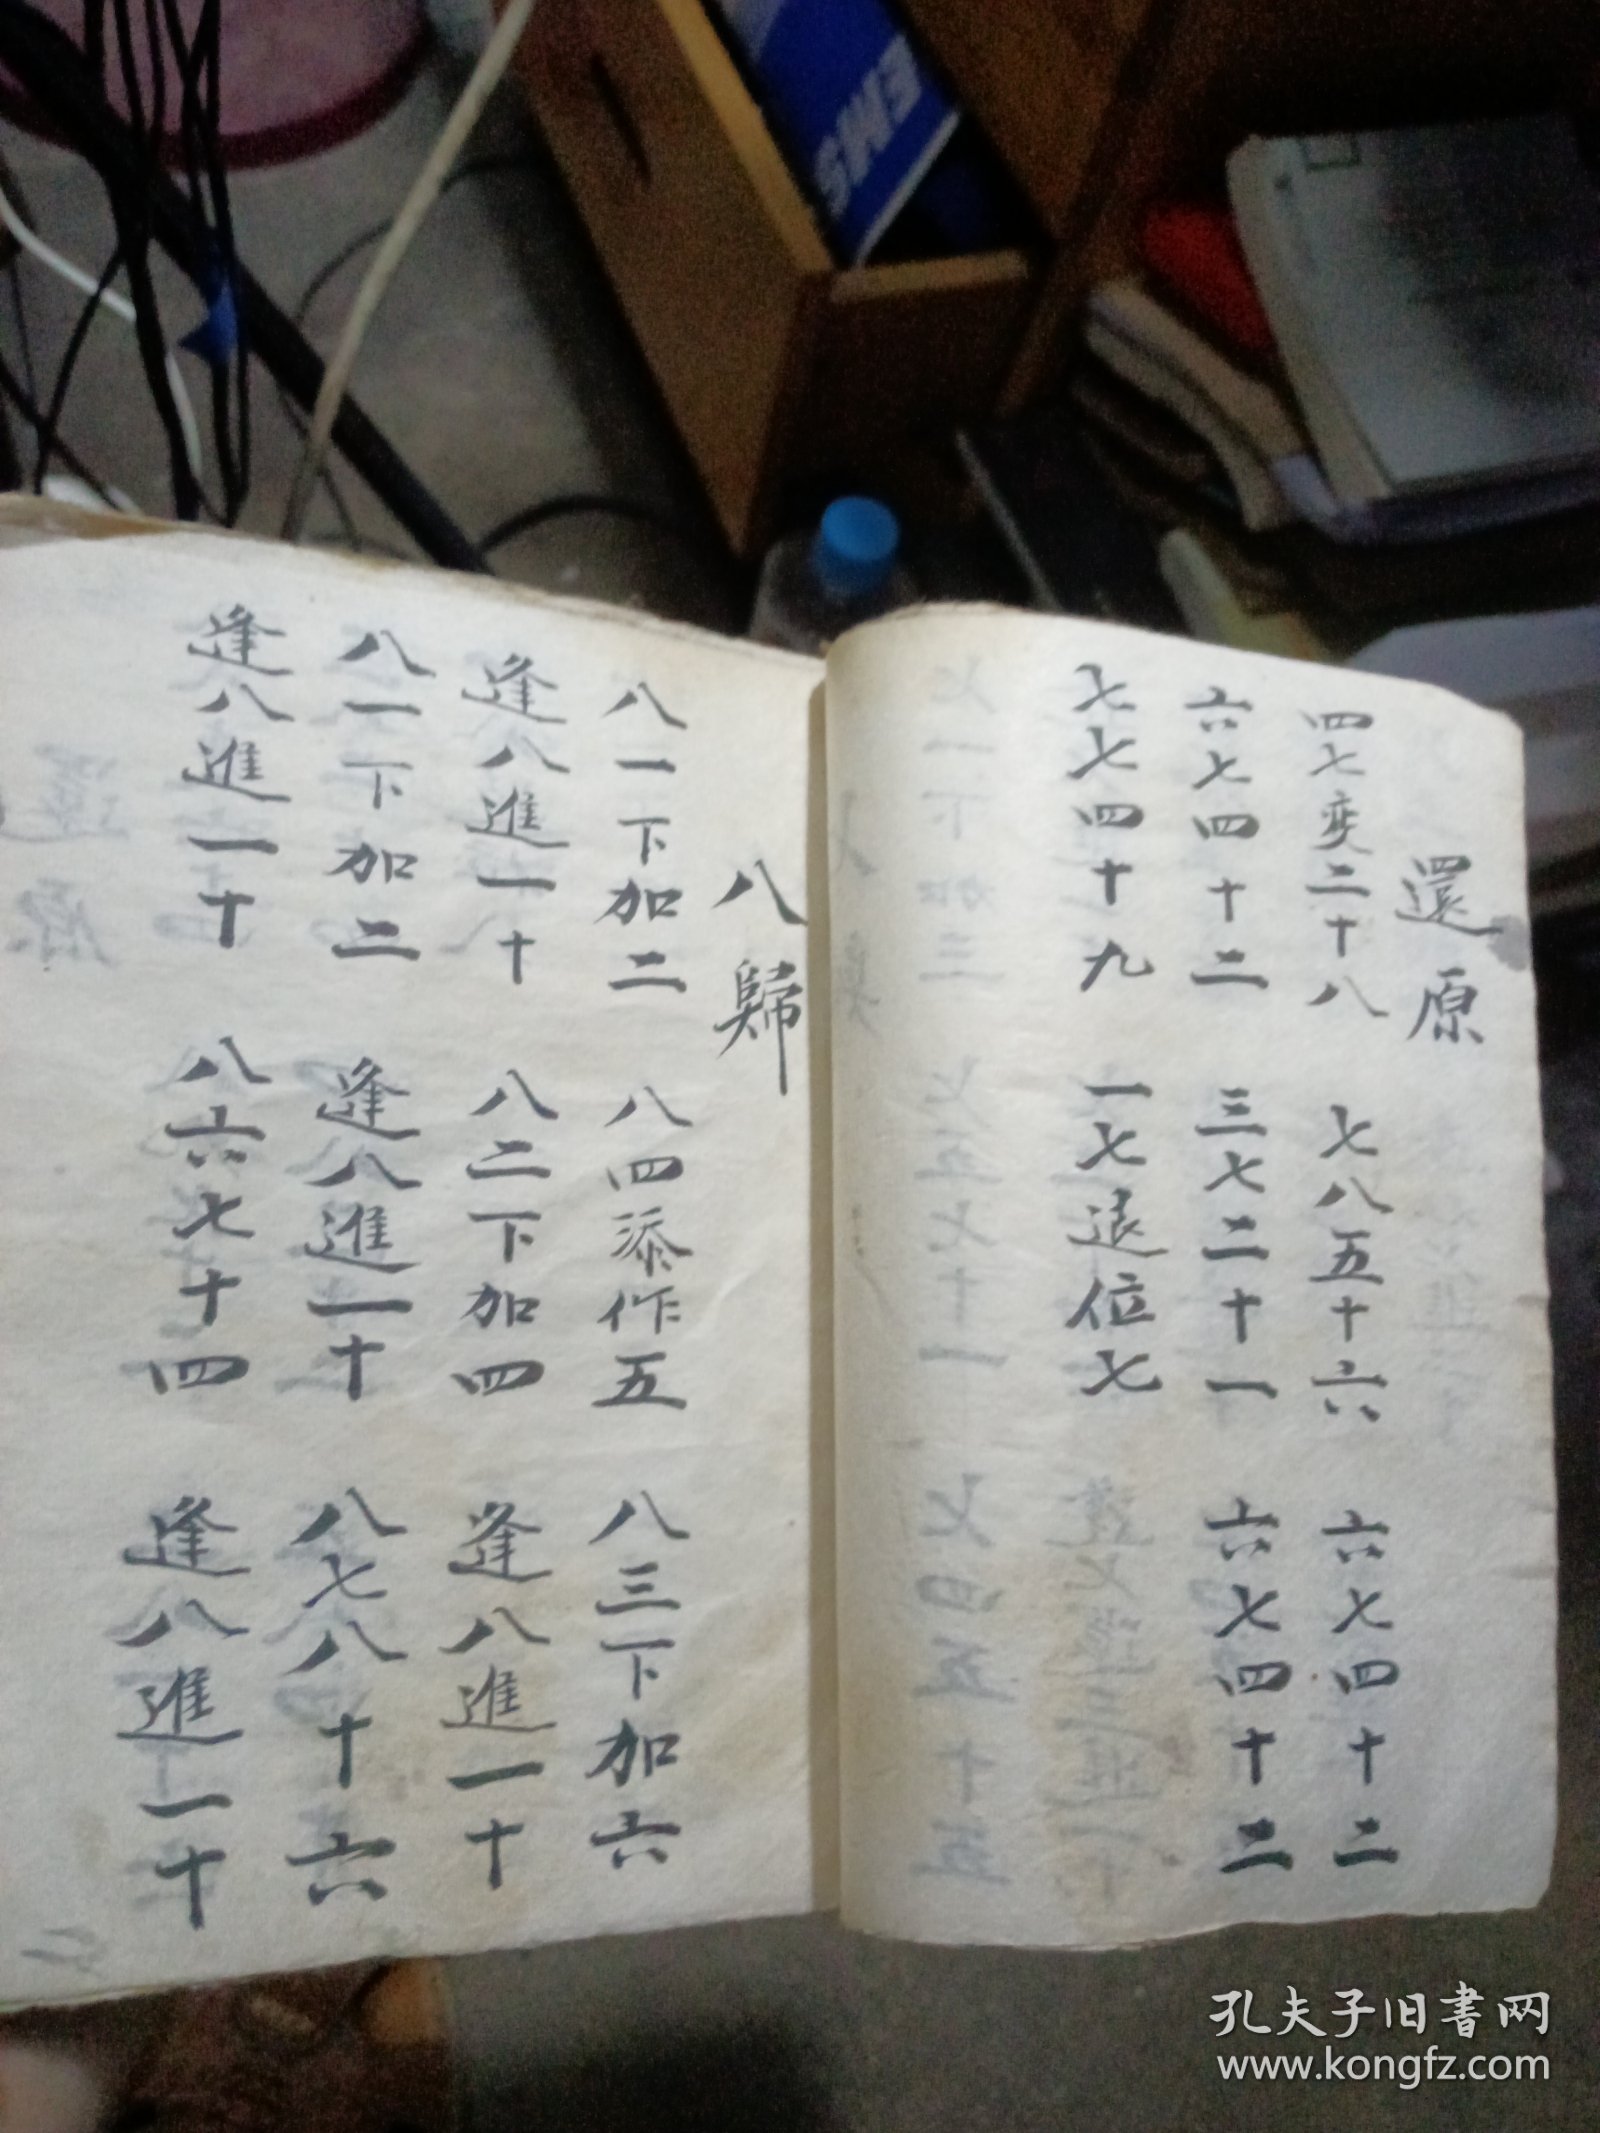 還原
四七变二十八 七八五十六 六七四十二
六七四十二 三七二十一 六七四十二
七七四十九 一七退位七
八歸
八一下加二 八四添作五 八三下加六
逢八進一十 八二下加四 逢八進一十
八一下加二 逢八進一十 八七八十六
逢八進一十 八六七十四 逢八進一十
EMS
孔夫子旧書网
www.kongfz.com